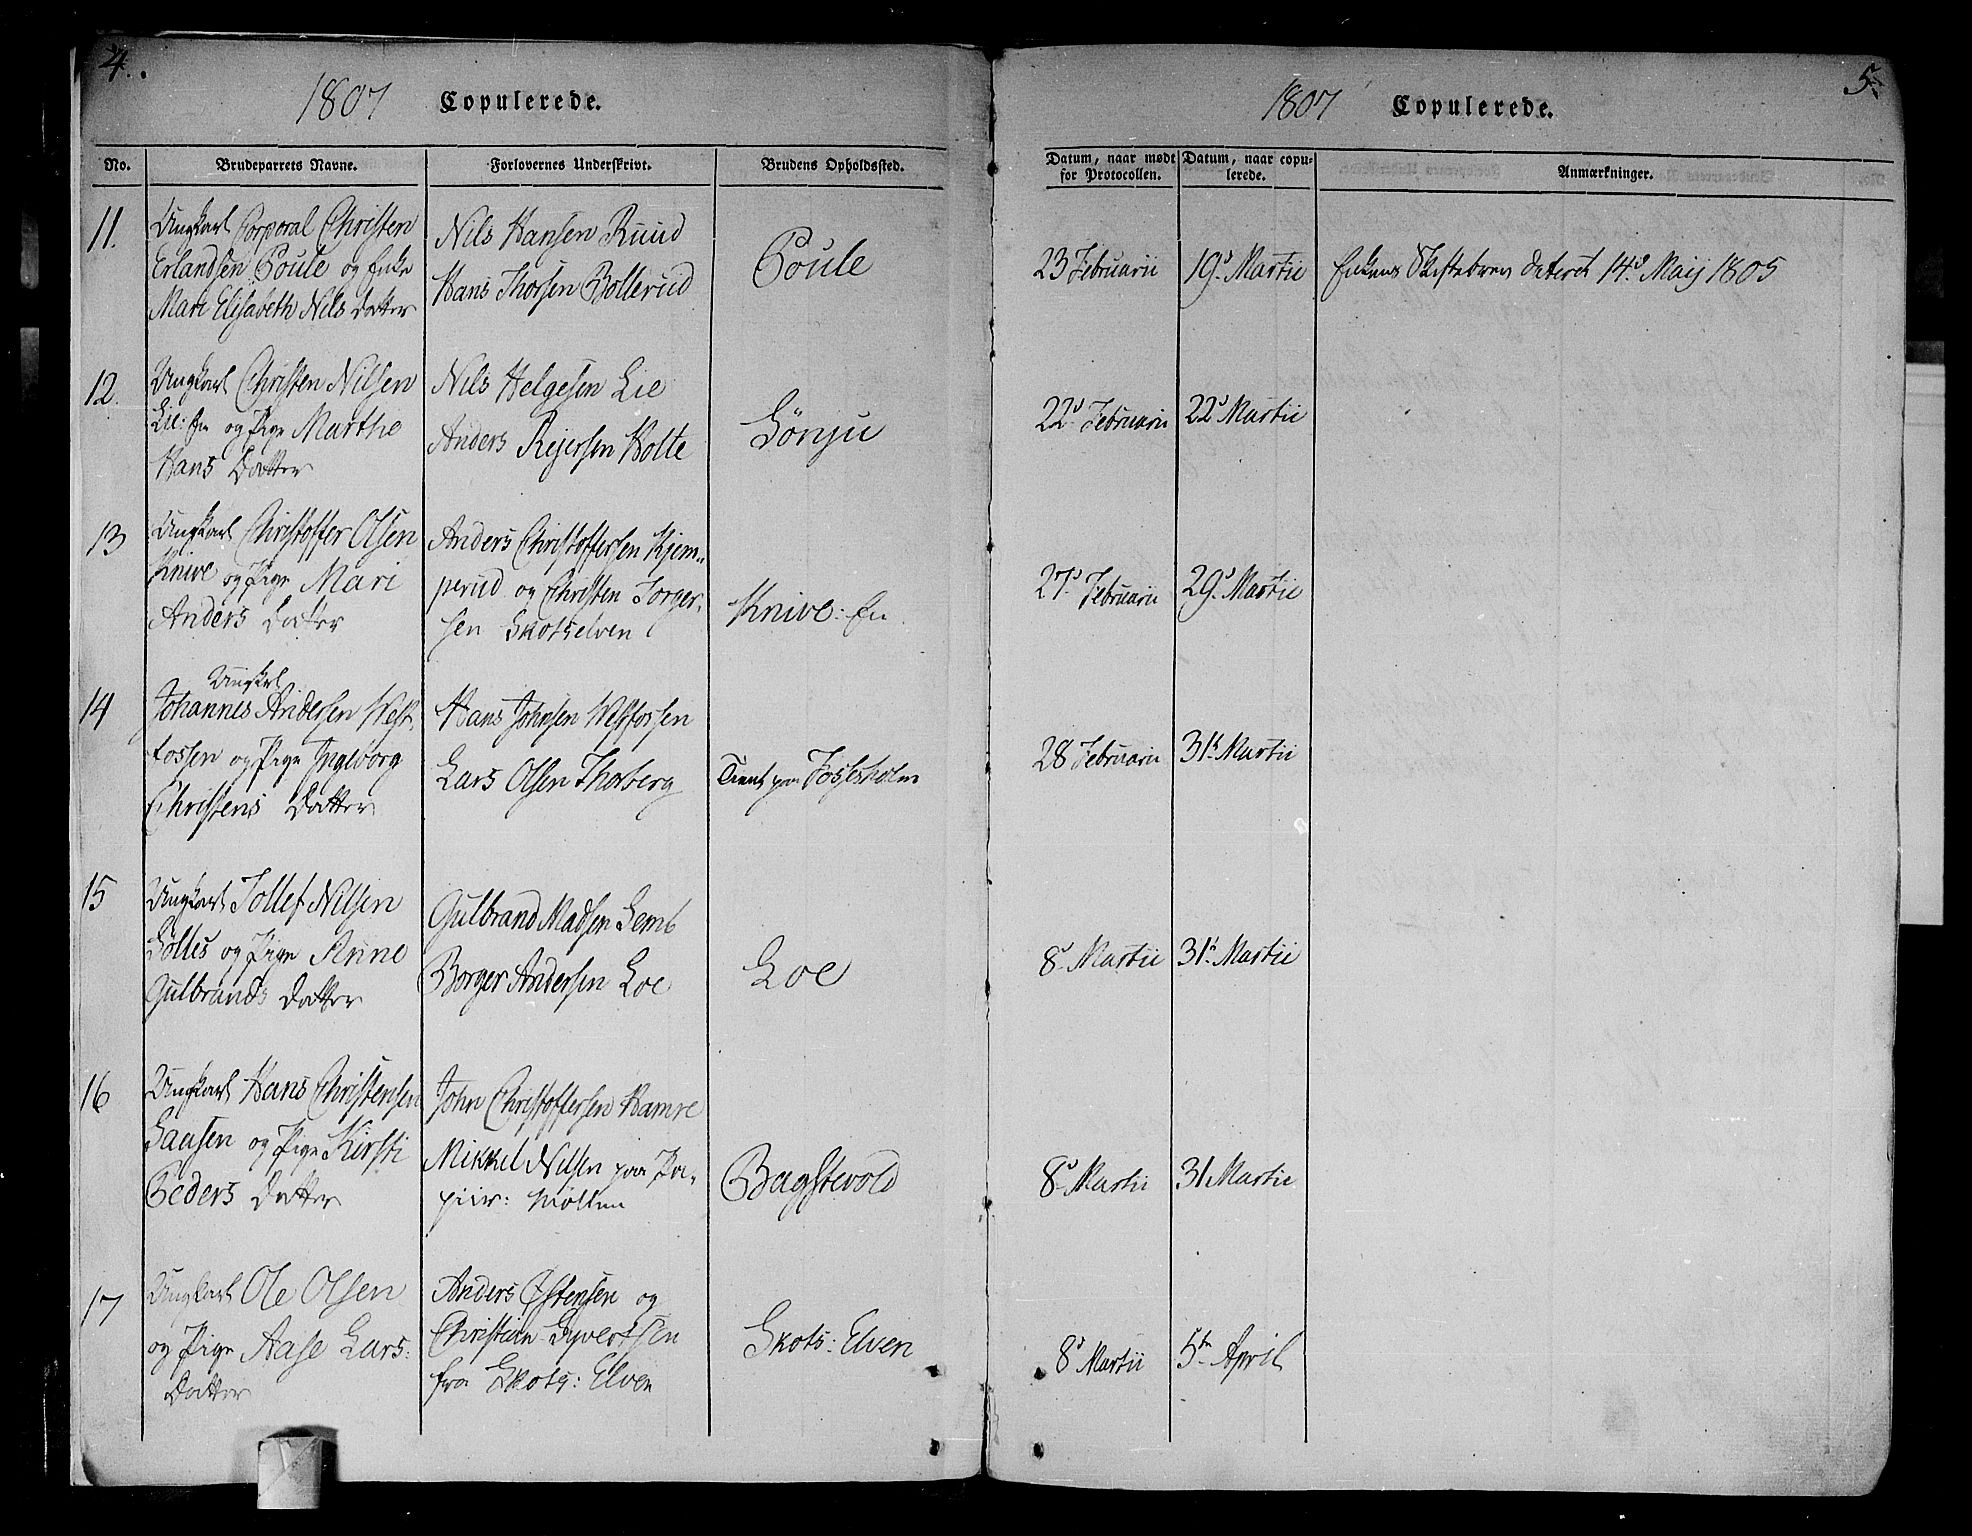 4.
1807 Copulerede.
No. Brudeparrets Navne. Forlovernes Underskrivt. Brudens Opholdssted.
11. Ungkarl Corporal Christen
Erlandsen Poule og Enke
Mari Elisabeth Nils Datter
Nils Hansen Ruud
Hans Thorsen Bollerud
Poule
12. Ungkarl Christen Nilsen
Lie: Eie og Pige Marthe
Hans Datter
Nils Helgesen Lie
Anders Rejersen Holte
Sønju
13 Ungkarl Christoffer Olsen
Knive og Pige Mari
Anders Datter
Anders Christoffersen Kjem-
perud og Christen Torger-
sen Skotselven
Knive: Eie
14 Ungkel
Johannes Andersen West-
fossen og Pige Ingeborg
Christens Datter
Hans Johnsen Westfossen
Lars Olsen Thorberg
Tient paa Fossesholm
15 Ungkarl Tollef Nilsen
og Pige Anne
Gulbrands Datter
Gulbrand Madsen Semb
Borger Andersen Loe
Loe
16 Ungkarl Hans Christensen
Saasen og Pige Kirsti
Peders Datter
John Christoffersen Hamre
Mikkel Nilsen paa Pa-
piir: Møllen
Bagstevold
17 Ungkarl Ole Olsen
og Pige Aase Lars:
Datter
Anders Østensen og
Christian Syvertsen
fra Skots: Elven
Skots: Elven
5.
1807 Copulerede.
Datum, naar mødt for Protocollen. Datum, naar copu-lerede. Anmærkninger.
23 Februarii 19d Martii Enkens Skiftebrev dateret 14d Maij 1805
22d Februarii 22d Martii
27d Februarii 29d Martii
28 Februarii 31te Martii
8d Martii 31te Martii
8d Martii 31 Martii
8d Martii 5te April